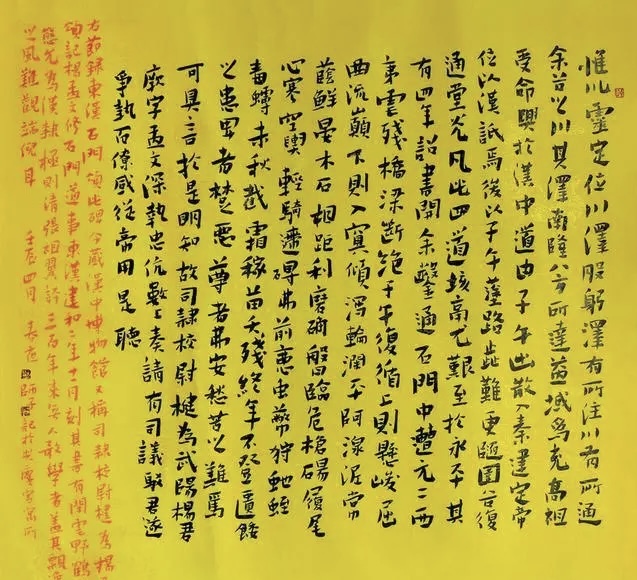 惟川靈定位川澤股躬澤有所注川有所通
余谷之川其澤南隆八方所達益域為充高祖
受命興於漢中道由子午出散入秦建定帝
位以漢詆焉後以子午塗路歮難更隨圍谷復
通堂光凡此四道垓鬲尤艱至於永平其
有四年詔書開余鑿通石門中遭元二西
夷虐殘橋梁斷絕子午復循上則懸峻屈
曲流巔下則入冥傾瀉輪淵平阿淖泥常
蔭鮮晏木石相距利磨确磐臨危槍碭履尾
心寒空輿輕騎遰碍弗前惡虫蔽狩虵蛭
毒蟃未秋截霜稼苗夭殘終年不登匱餧
之患卑者楚惡尊者弗安愁苦之難焉
可具言於是明知故司隸校尉楗為武陽楊君
厥字孟文深執忠伉數上奏請有司議駁君遂
爭執百僚咸從帝用是聽
右節錄東漢石門頌此碑今藏漢中博物館又稱司隸校尉楗為楊
頌記楊孟文修石門道事東漢建和二年十一月刻其書有閒雲野鶴
態允為漢隸極則清張祖翼評三百年來人敢學者蓋其飄
之風難覩端倪耳 壬辰四月 師記於寓所